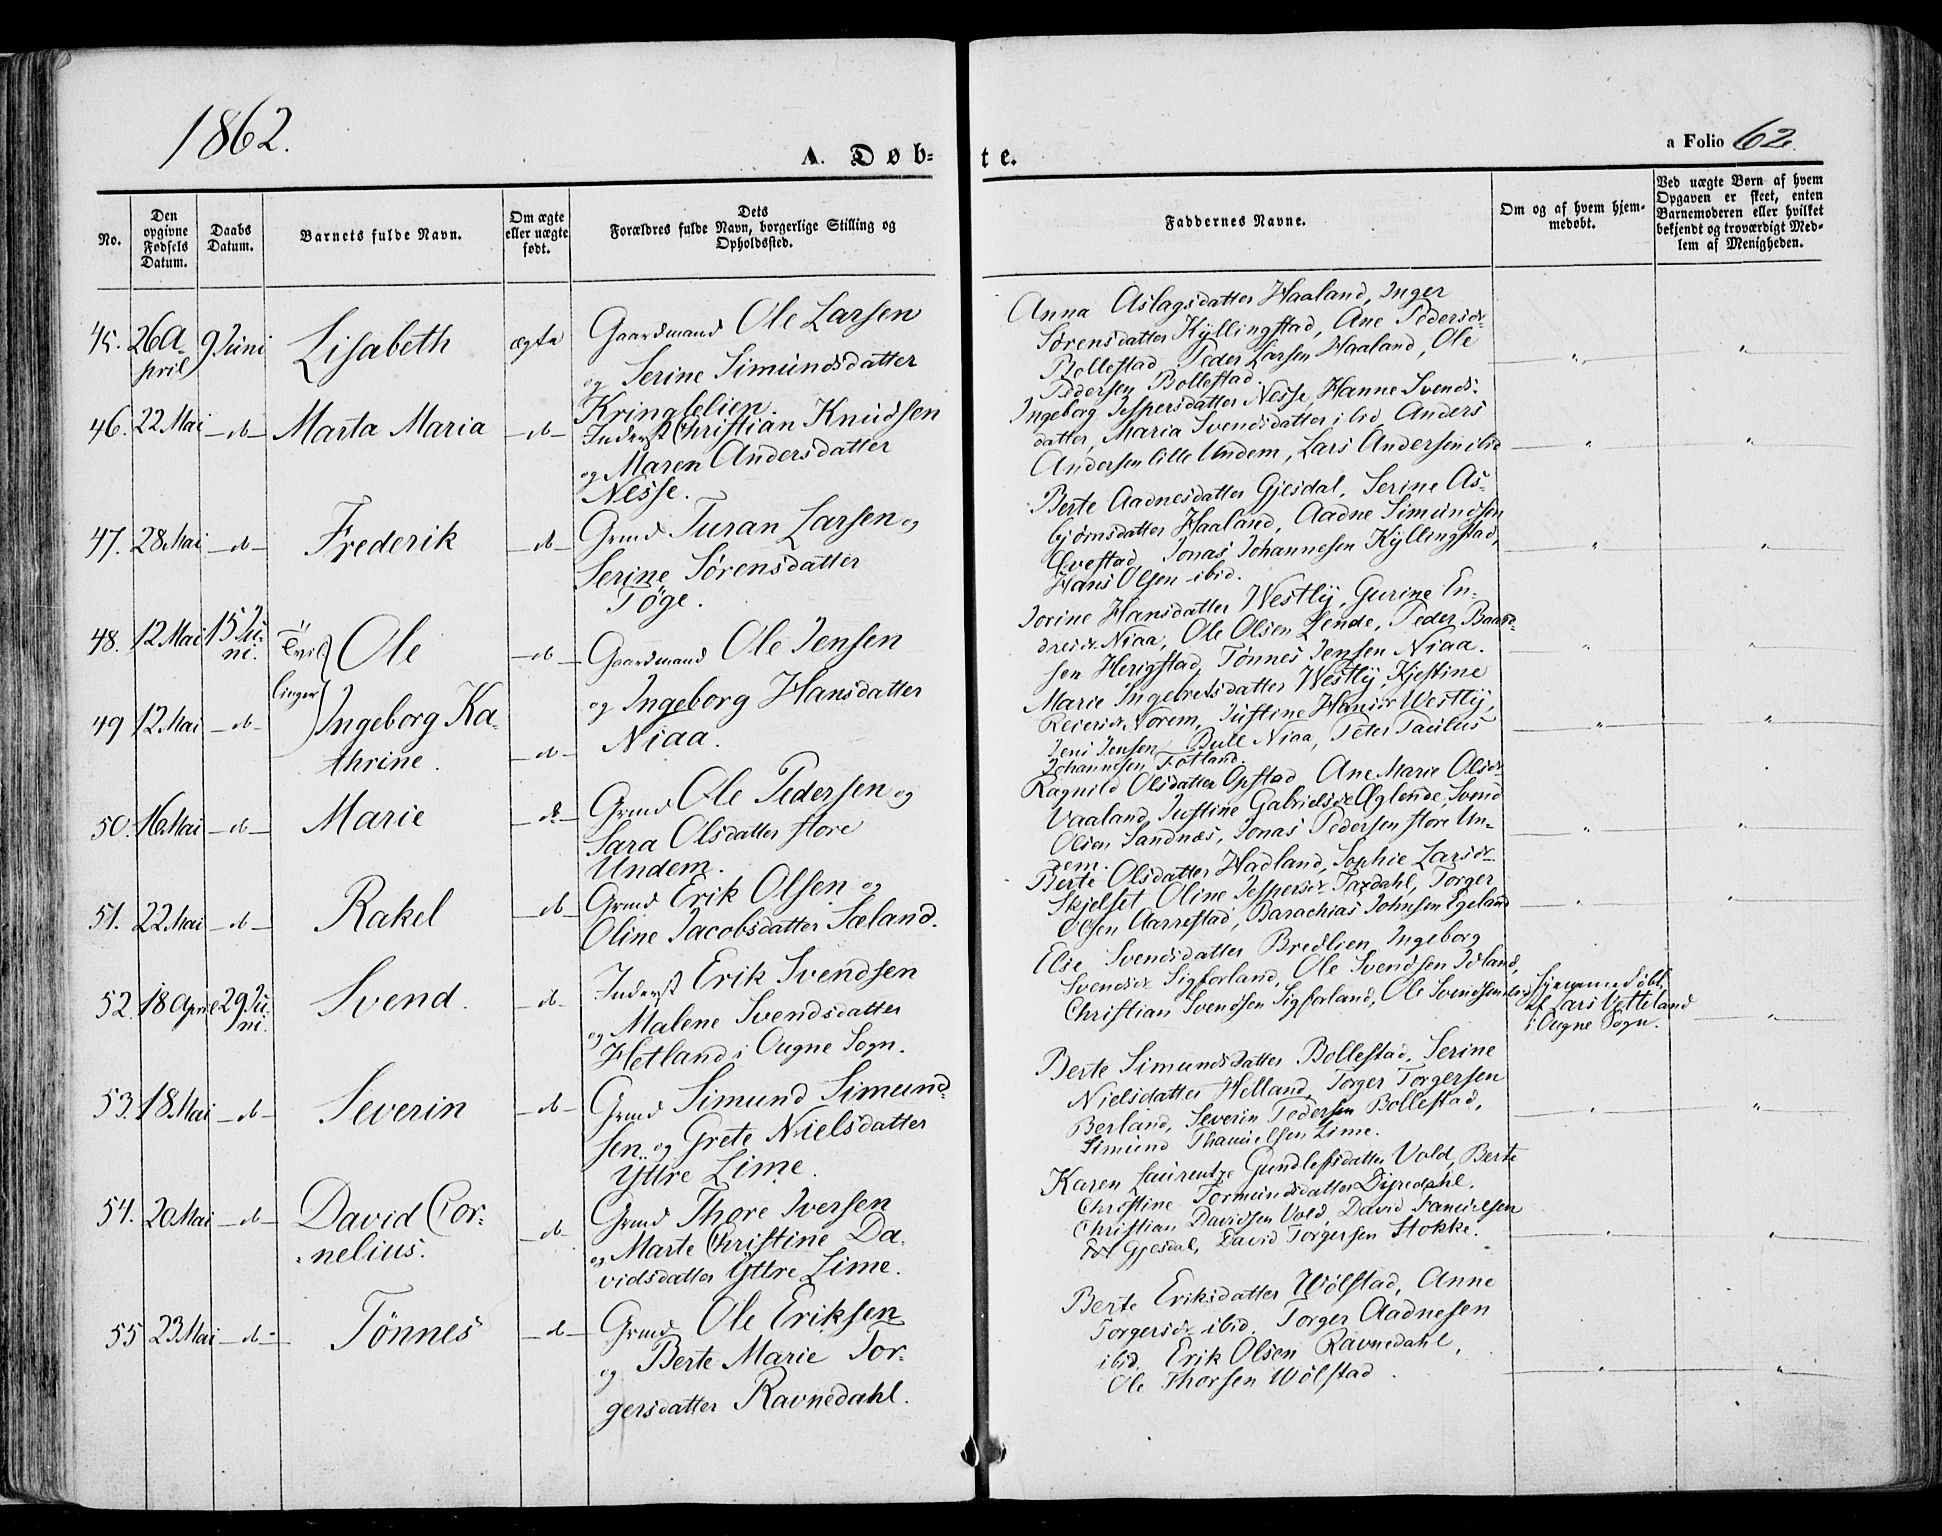 1862.
A. Døb-
te.
a Folio 62.
No.
Den opgivne Fødsels Datum.
Daabs Datum.
Barnets fulde Navn.
Om ægte eller uægte født.
Dets Forældres fulde Navn, borgerlige Stilling og Opholdssted.
Faddernes Navne.
Om og af hvem hjemmedøbt.
Ved uægte Børn af hvem Opgaven er skeet, enten Barnemoderen eller hvilket bekjendt og troværdigt Medlem af Menigheden.
45. 26 A-
pril
9 Juni
Lisabeth
ægte
Gaardmand Ole Larsen
og Serine Simundsdatter
Kringlelien.
Anna Aslagsdatter Haaland, Inger
Sørensdatter Kyllingstad, Ane Pedersdr
Bollestad, Peder Larsen Haaland, Ole
Pedersen Bollestad.
46. 22 Mai -do- Marta Maria -do-
Inderst Christian Knudsen
og Maren Andersdatter
Nesse.
Ingeborg Jespersdatter Nesse, Hanne Svends-
datter, Maria Svendsdatter ibid, Anders
Andersen lille Undem, Lars Andersen ibid
47. 28 Mai -do- Frederik -do-
Grmd Turan Larsen og
Serine Sørensdatter
Tøge.
Berte Aadnesdatter Gjesdal, Serine As-
bjørnsdatter Haaland, Aadne Simundsen
Qvestad, Jonas Johannesen Kyllingstad,
Hans Olsen ibid.
48. 12 Mai 15 Ju-
ni.
Tvil-
linger
Ole -do-
Gaardmand Ole Jensen
og Ingeborg Hansdatter
Niaa.
Jorine Hansdatter Westly, Gurine En-
dresdr Niaa, Ole Olsen Lende, Peder Baard-
sen Herigstad, Tønnes Jensen Niaa.
49 12 Mai -do- Ingeborg Ka-
thrine. -do-
Marie Ingebretsdatter Westly, Kjestine
Reiersdr Norem, Justine Hansdr Westly,
Jens Jensen Bull Niaa, Peter Paulus
Johannesen Fotland.
50. 16 Mai -do- Marie -do-
Grmd Ole Pedersen og
Sara Olsdatter store
Undem.
Ragnild Olsdatter Opstad, Ane Marie Olsdr
Vaaland, Justine Gabrielsdr Øglende, Svend
Olsen Sandnæs, Jonas Pedersen store Un-
dem.
51. 22 Mai -do- Rakel -do-
Grmd Erik Olsen og
Oline Jacobsdatter Sæland.
Berte Olsdatter Hadland, Sophie Larsdr
Skjelset, Oline Jespersdr Taxdahl, Torger
Olsen Aarrestad, Barachias Johnsen Egeland
52. 18 April 29 Ju-
ni.
Svend. -do-
Inderst Erik Svendsen
og Malene Svendsdatter
Hetland i Ougne Sogn.
Else Svendsdatter Bredlien, Ingeborg
Svendsdr Sigforland, Ole Svendsen
Christian Svendsen Sigforland, Ole Svendsen
Hjemmedøbt
af Lars Vetteland
i Ougne Sogn.
53. 18 Mai -do- Severin -do-
Grmd Simund Simund-
sen og Grete Nielsdatter
Yttre Lime.
Berte Simundsdatter Bollestad, Serine
Nielsdatter Helland, Torger Torgersen
Berland, Severin Pedersen Bollestad,
Simund Thamielsen Lime.
54. 20 Mai -do- David Cor-
nelius. -do-
Grmd Thore Iversen
og Marte Christine Da-
vidsdatter Yttre Lime.
Karen Laurentze Gundlefsdatter Vold, Berte
Christine Tormundsdatter Dijredahl.
Christian Davidsen Vold, David Samuelsen
Gjesdal, David Torgersen Stokke.
55 23 Mai -do- Tønnes -do-
Grmd Ole Eriksen
og Berte Marie Tor-
gersdatter Ravnedahl.
Berte Eriksdatter Wølstad, Anne
Torgersdr ibid, Torger Aadnesen
ibid. Erik Olsen Ravnedahl,
Ole Thorsen Wølstad.